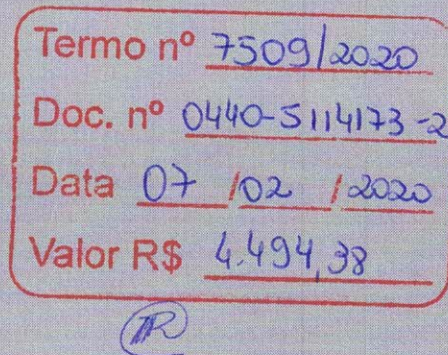 Termo nº 7509/2020
Doc. nº 0440-5114173-2
Data 07 / 02 / 2020
Valor R$ 4.494,38